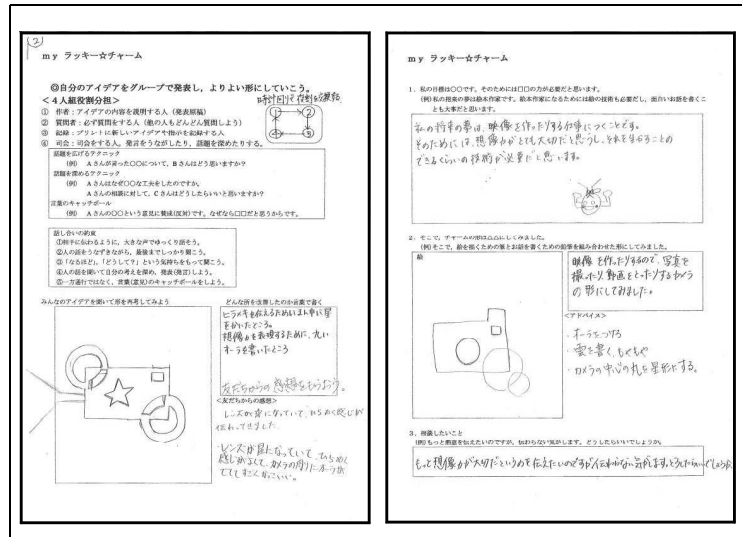 ②
my ラッキー☆チャーム
◎自分のアイデアをグループで発表し，よりよい形にしていこう。
＜４人組役割分担＞
時計回りで役割を交換する
① 作者：アイデアの内容を説明する人（発表原稿）
② 質問者：必ず質問をする人（他の人もどんどん質問しよう）
③ 記録：プリントに新しいアイデアや指示を記録する人
④ 司会：司会をする人。発言をうながしたり，話題を深めたりする。
① ②
④ ③
話題を広げるテクニック
（例） Aさんが言った○○について，Bさんはどう思いますか？
話題を深めるテクニック
（例） Aさんはなぜ○○な工夫をしたのですか。
Aさんの相談に対して，Cさんはどうしたらいいと思いますか？
言葉のキャッチボール
（例） Aさんの○○という意見に賛成(反対)です。なぜなら□□だと思うからです。
話し合いの約束
①相手に伝わるように，大きな声でゆっくり話そう。
②人の話をうなずきながら，最後までしっかり聞こう。
③「なるほど」，「どうして？」という気持ちをもって聞こう。
④人の話を聞いて自分の考えを深め，発表(発言)しよう。
⑤一方通行ではなく，言葉(意見)のキャッチボールをしよう。
みんなのアイデアを聞いて形を再考してみよう
どんな所を改善したのか言葉で書く
ヒラメキを伝えるためにまん中に星
をかいたところ。
想像力を表現するために，丸い
オーラを書いたところ
友だちからの感想をもらおう。
＜友だちからの感想＞
レンズが星になっていて，ひらめく感じが
伝わってきました。
・レンズが星になっていて，ひらめく
感じがよくて，カメラの周りにオーラが
でてすごくかっこいい。
my ラッキー☆チャーム
１．私の目標は○○です。そのためには□□の力が必要だと思います。
（例）私の将来の夢は絵本作家です。絵本作家になるためには絵の技術も必要だし，面白いお話を書くこ
とも大事だと思います。
私の将来の夢は、映像を作ったりする仕事につくことです。
そのためには、想像力がとても大切だと思うし、それを生かすことの
できるくらいの技術が必要だと思います。
２．そこで，チャームの形は△△にしてみました。
（例）そこで，絵を描くための筆とお話を書くための鉛筆を組み合わせた形にしてみました。
絵
映像を作ったりするので、写真を
撮ったり動画をとったりするカメラ
の形にしてみました。
＜アドバイス＞
・オーラをつける
・雲を書く，もくもく
・カメラの中心の丸を星形にする。
３．相談したいこと
（例）もっと熱意を伝えたいのですが，伝わらない気がします。どうしたらいいでしょうか。
もっと想像力が大切だというのを伝えたいのですが伝わらない気がします。どうしたらいいでしょうか